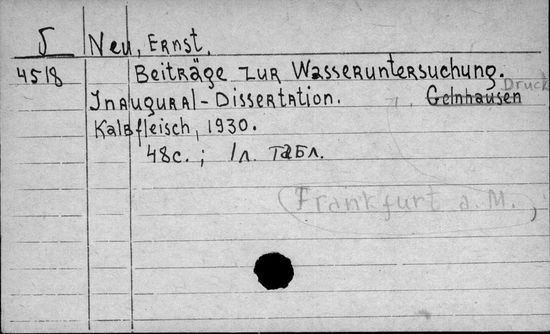 5 Neu, Ernst.
4518 Beiträge zur Wasseruntersuchung.
Druck
Inaugural-Dissertation. Gelnhausen
Kalbfleisch, 1930.
48с.; 1л. табл.
(Frankfurt a. M.,